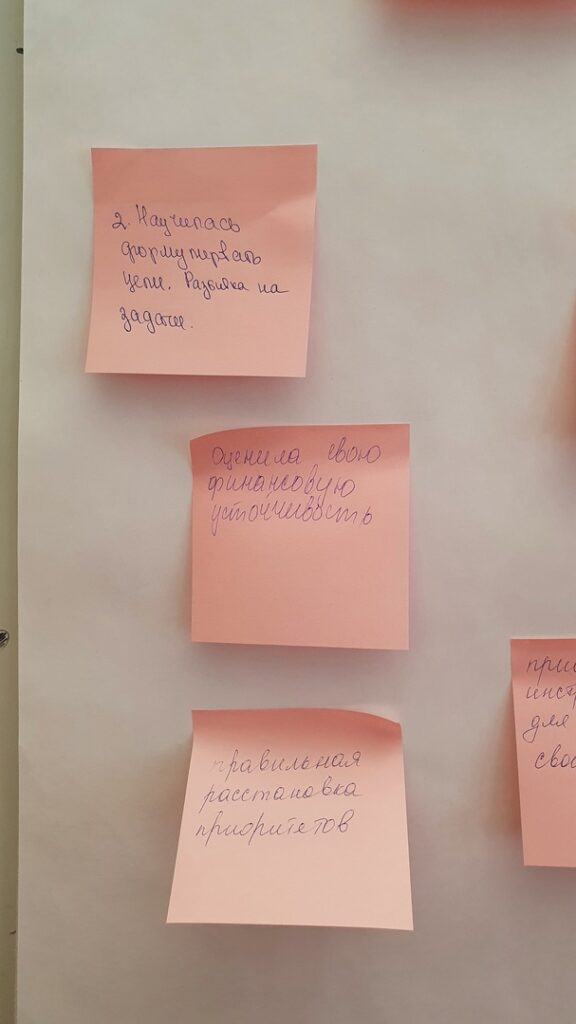 2. Научилась
формулировать
цели. Разбивка на
задачи.
Оценила свою
финансовую
устойчивость
правильная
расстановка
приоритетов
для